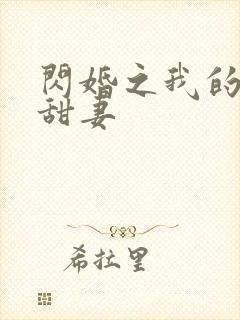 閃婚之我的
甜妻
希拉里